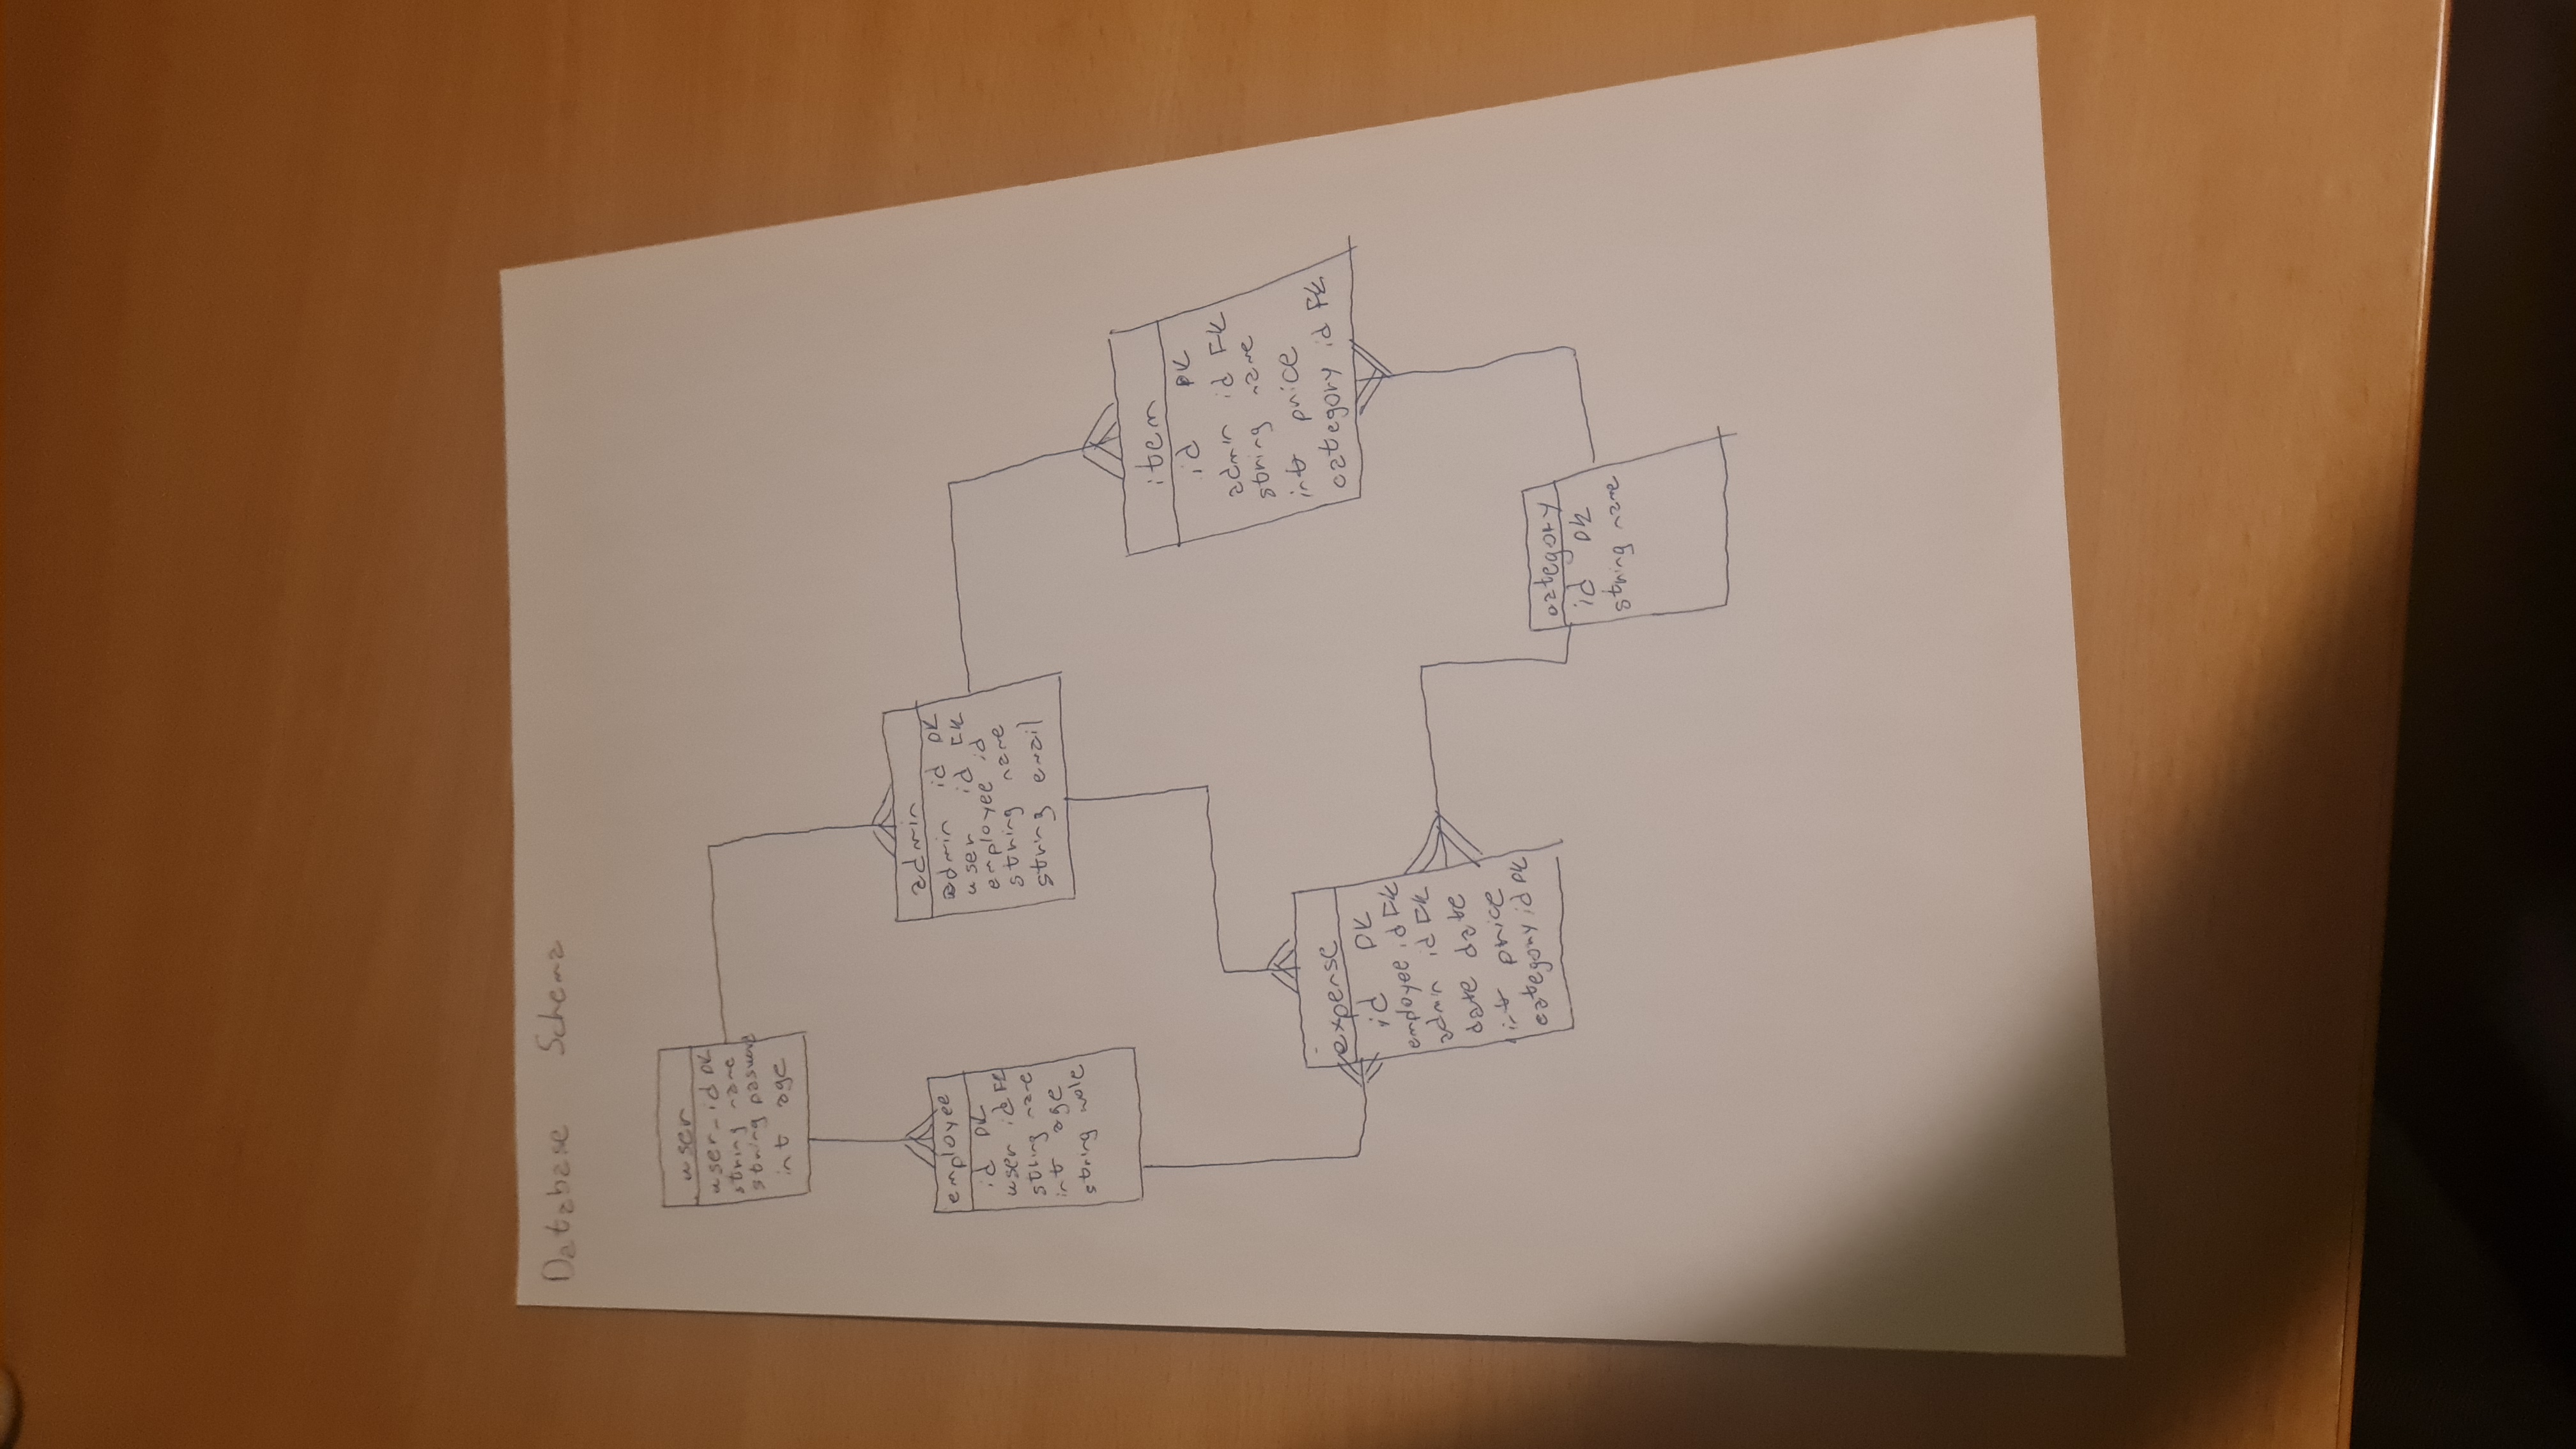 Database Schema
user
user_id PK
string name
string pasword
int age
employee
id PK
user id FK
string name
int age
string role
admin
admin id PK
user id FK
employee id
string name
string email
item
id PK
admin id FK
string name
int price
category id FK
expense
id PK
employee id FK
admin id FK
date date
int price
category id PK
category
id PK
string name